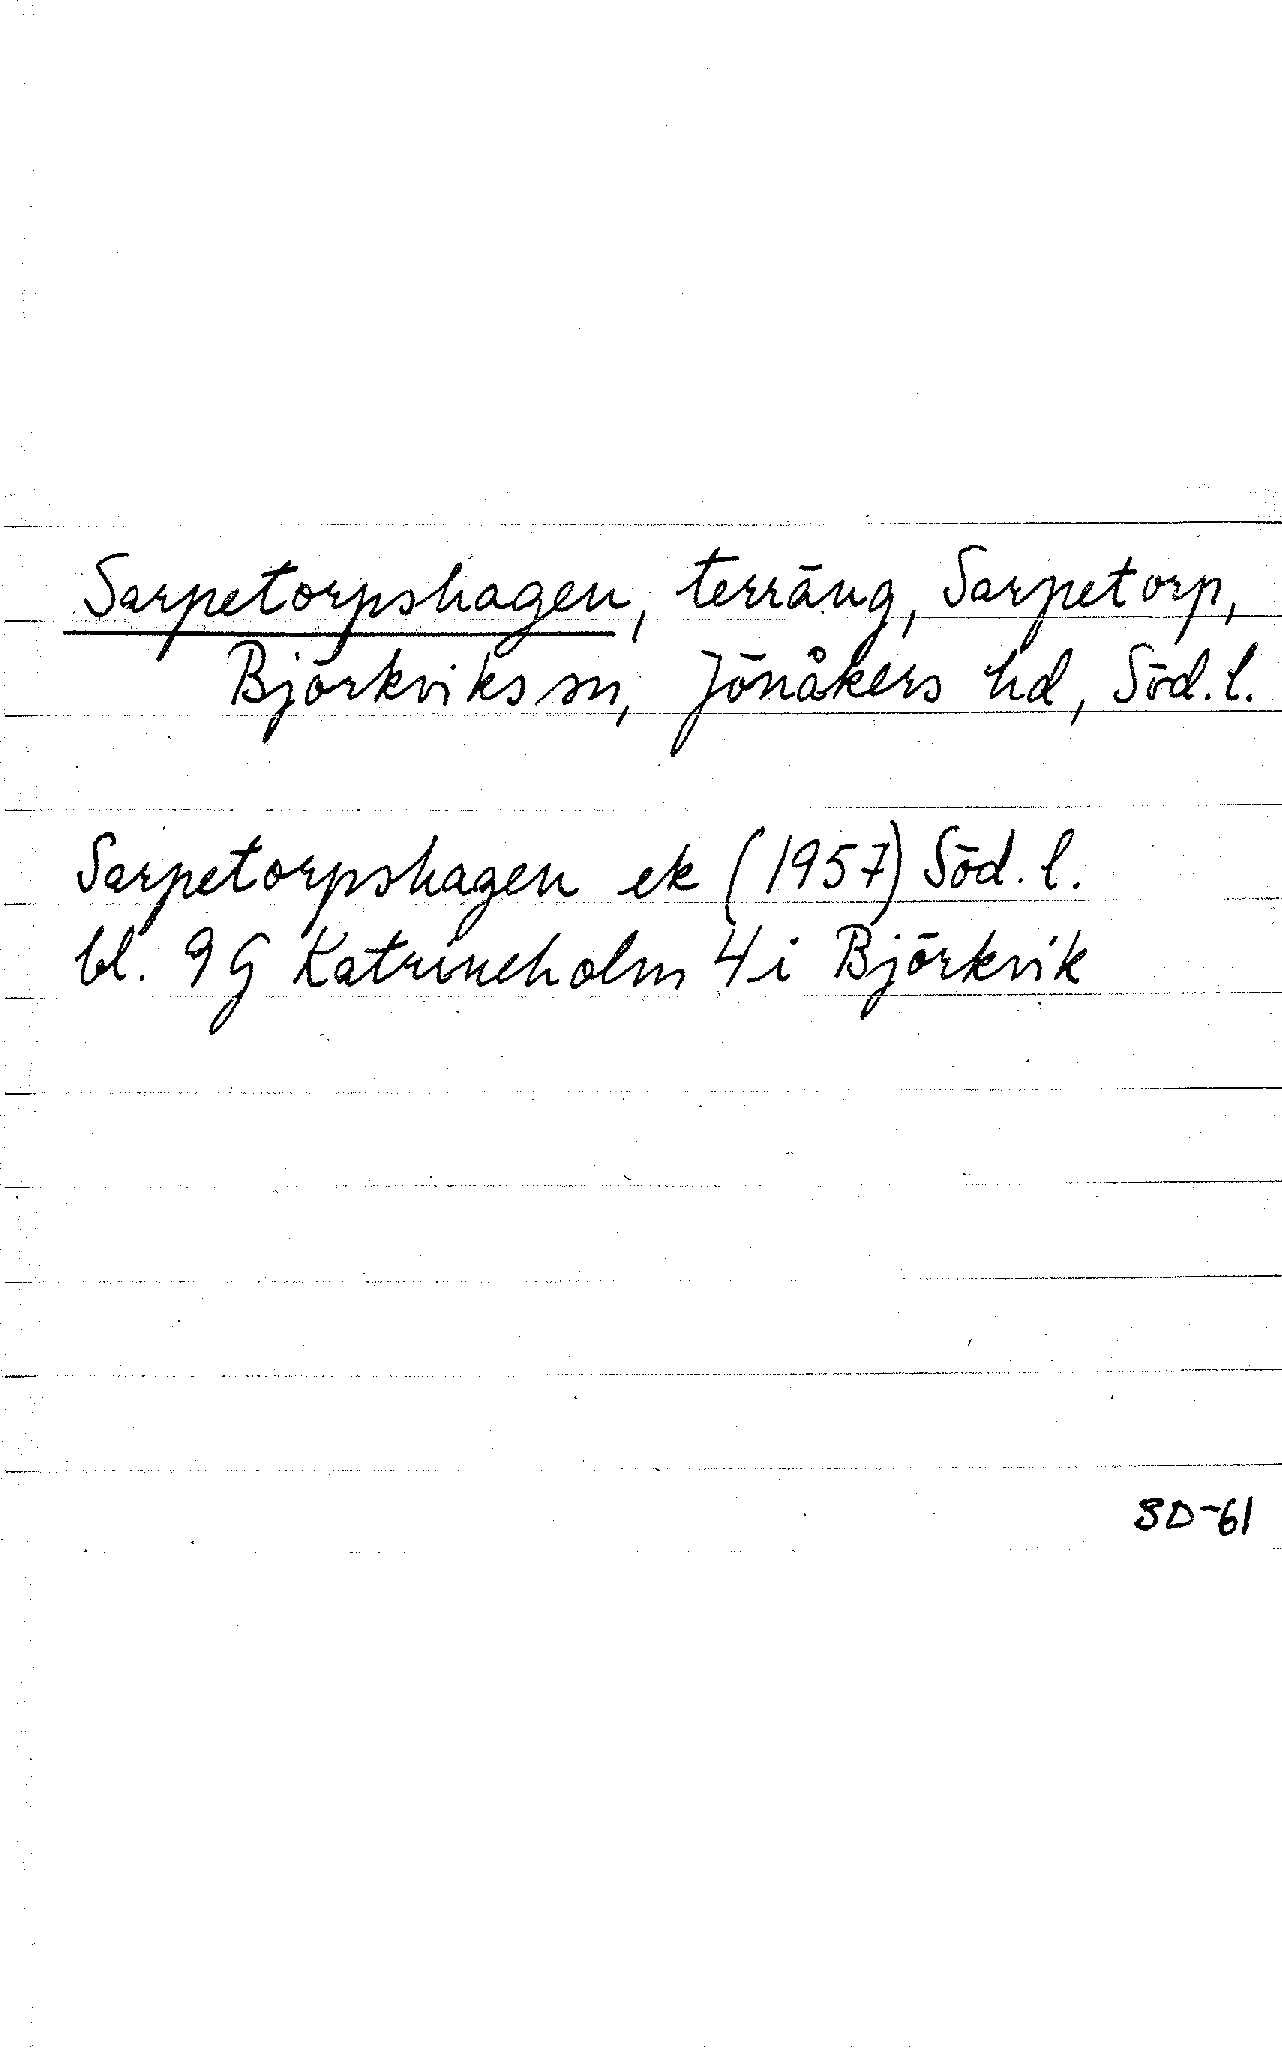 Sarpetorpshagen, terräng, Sarpetorp,
Björkviks sn, Jönåkers hd, Söd. l.
Sarpetorpshagen ek (1957) Söd. l.
bl. 9 G Katrineholm 4 i Björkvik
SD-61